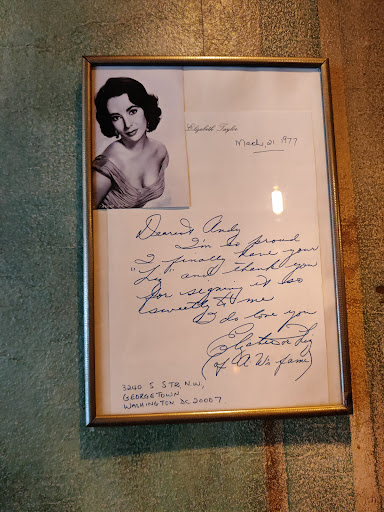 Elizabeth Taylor
March, 21 1977
Dearest Andy
I'm so proud
I finally have your
"Liz" and thank you
for signing it so
sweetly to me
I do love you
or Liz
(of A.W. fame)
3240 S STR, N.W,
GEORGETOWN
WASHINGTON DC 20007.